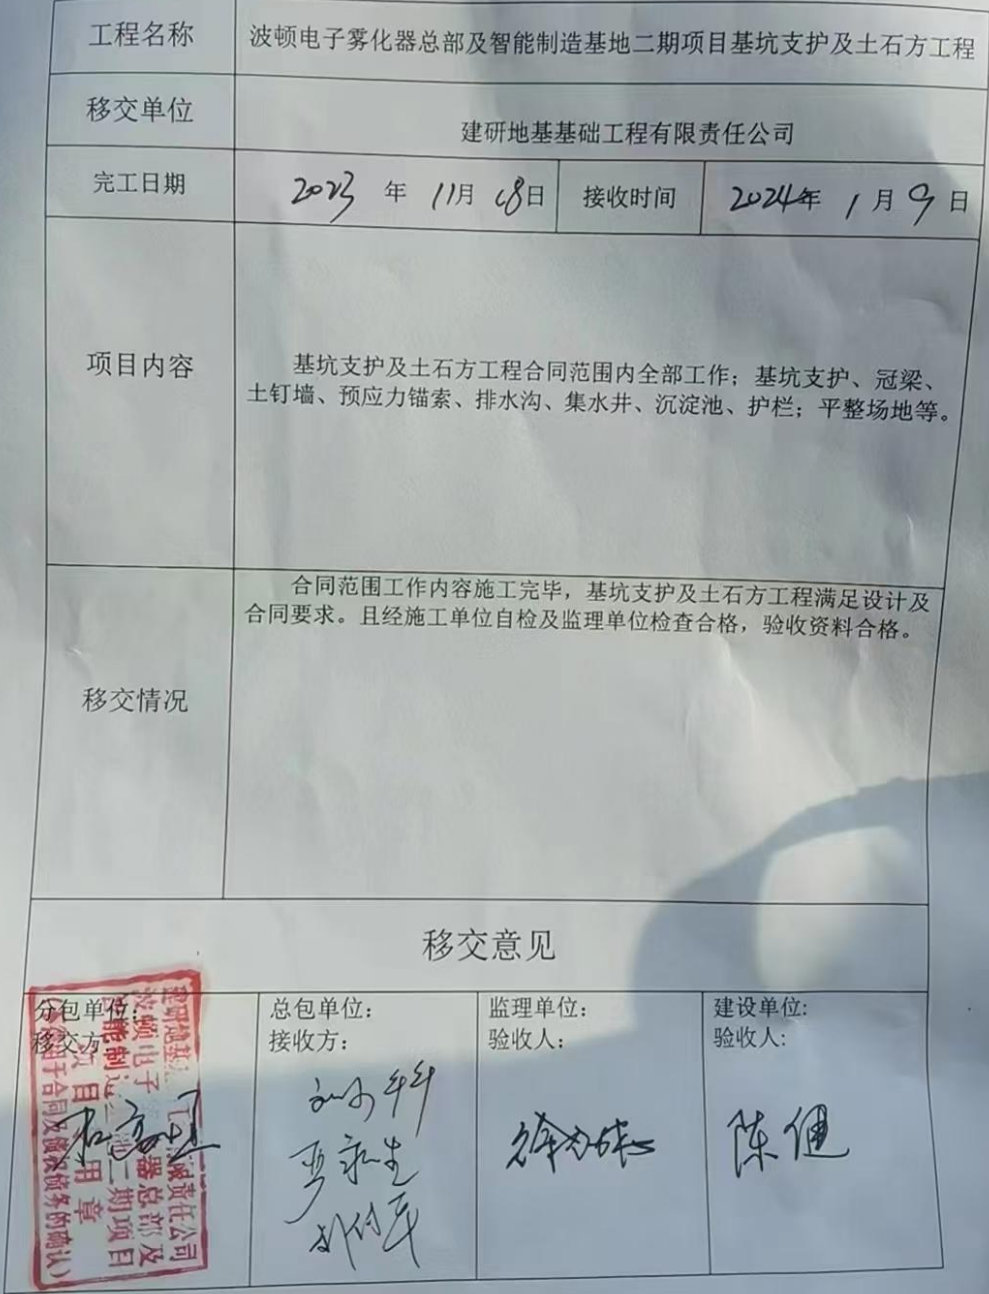 工程名称
波顿电子雾化器总部及智能制造基地二期项目基坑支护及土石方工程
移交单位
建研地基基础工程有限责任公司
完工日期
2023 年 11月 18日
接收时间
2024年 1 月 9 日
项目内容
基坑支护及土石方工程合同范围内全部工作；基坑支护、冠梁、
土钉墙、预应力锚索、排水沟、集水井、沉淀池、护栏；平整场地等。
移交情况
合同范围工作内容施工完毕，基坑支护及土石方工程满足设计及
合同要求。且经施工单位自检及监理单位检查合格，验收资料合格。
移交意见
分包单位：
移交方：
总包单位：
接收方：
监理单位：
验收人：
建设单位：
验收人：
陈健